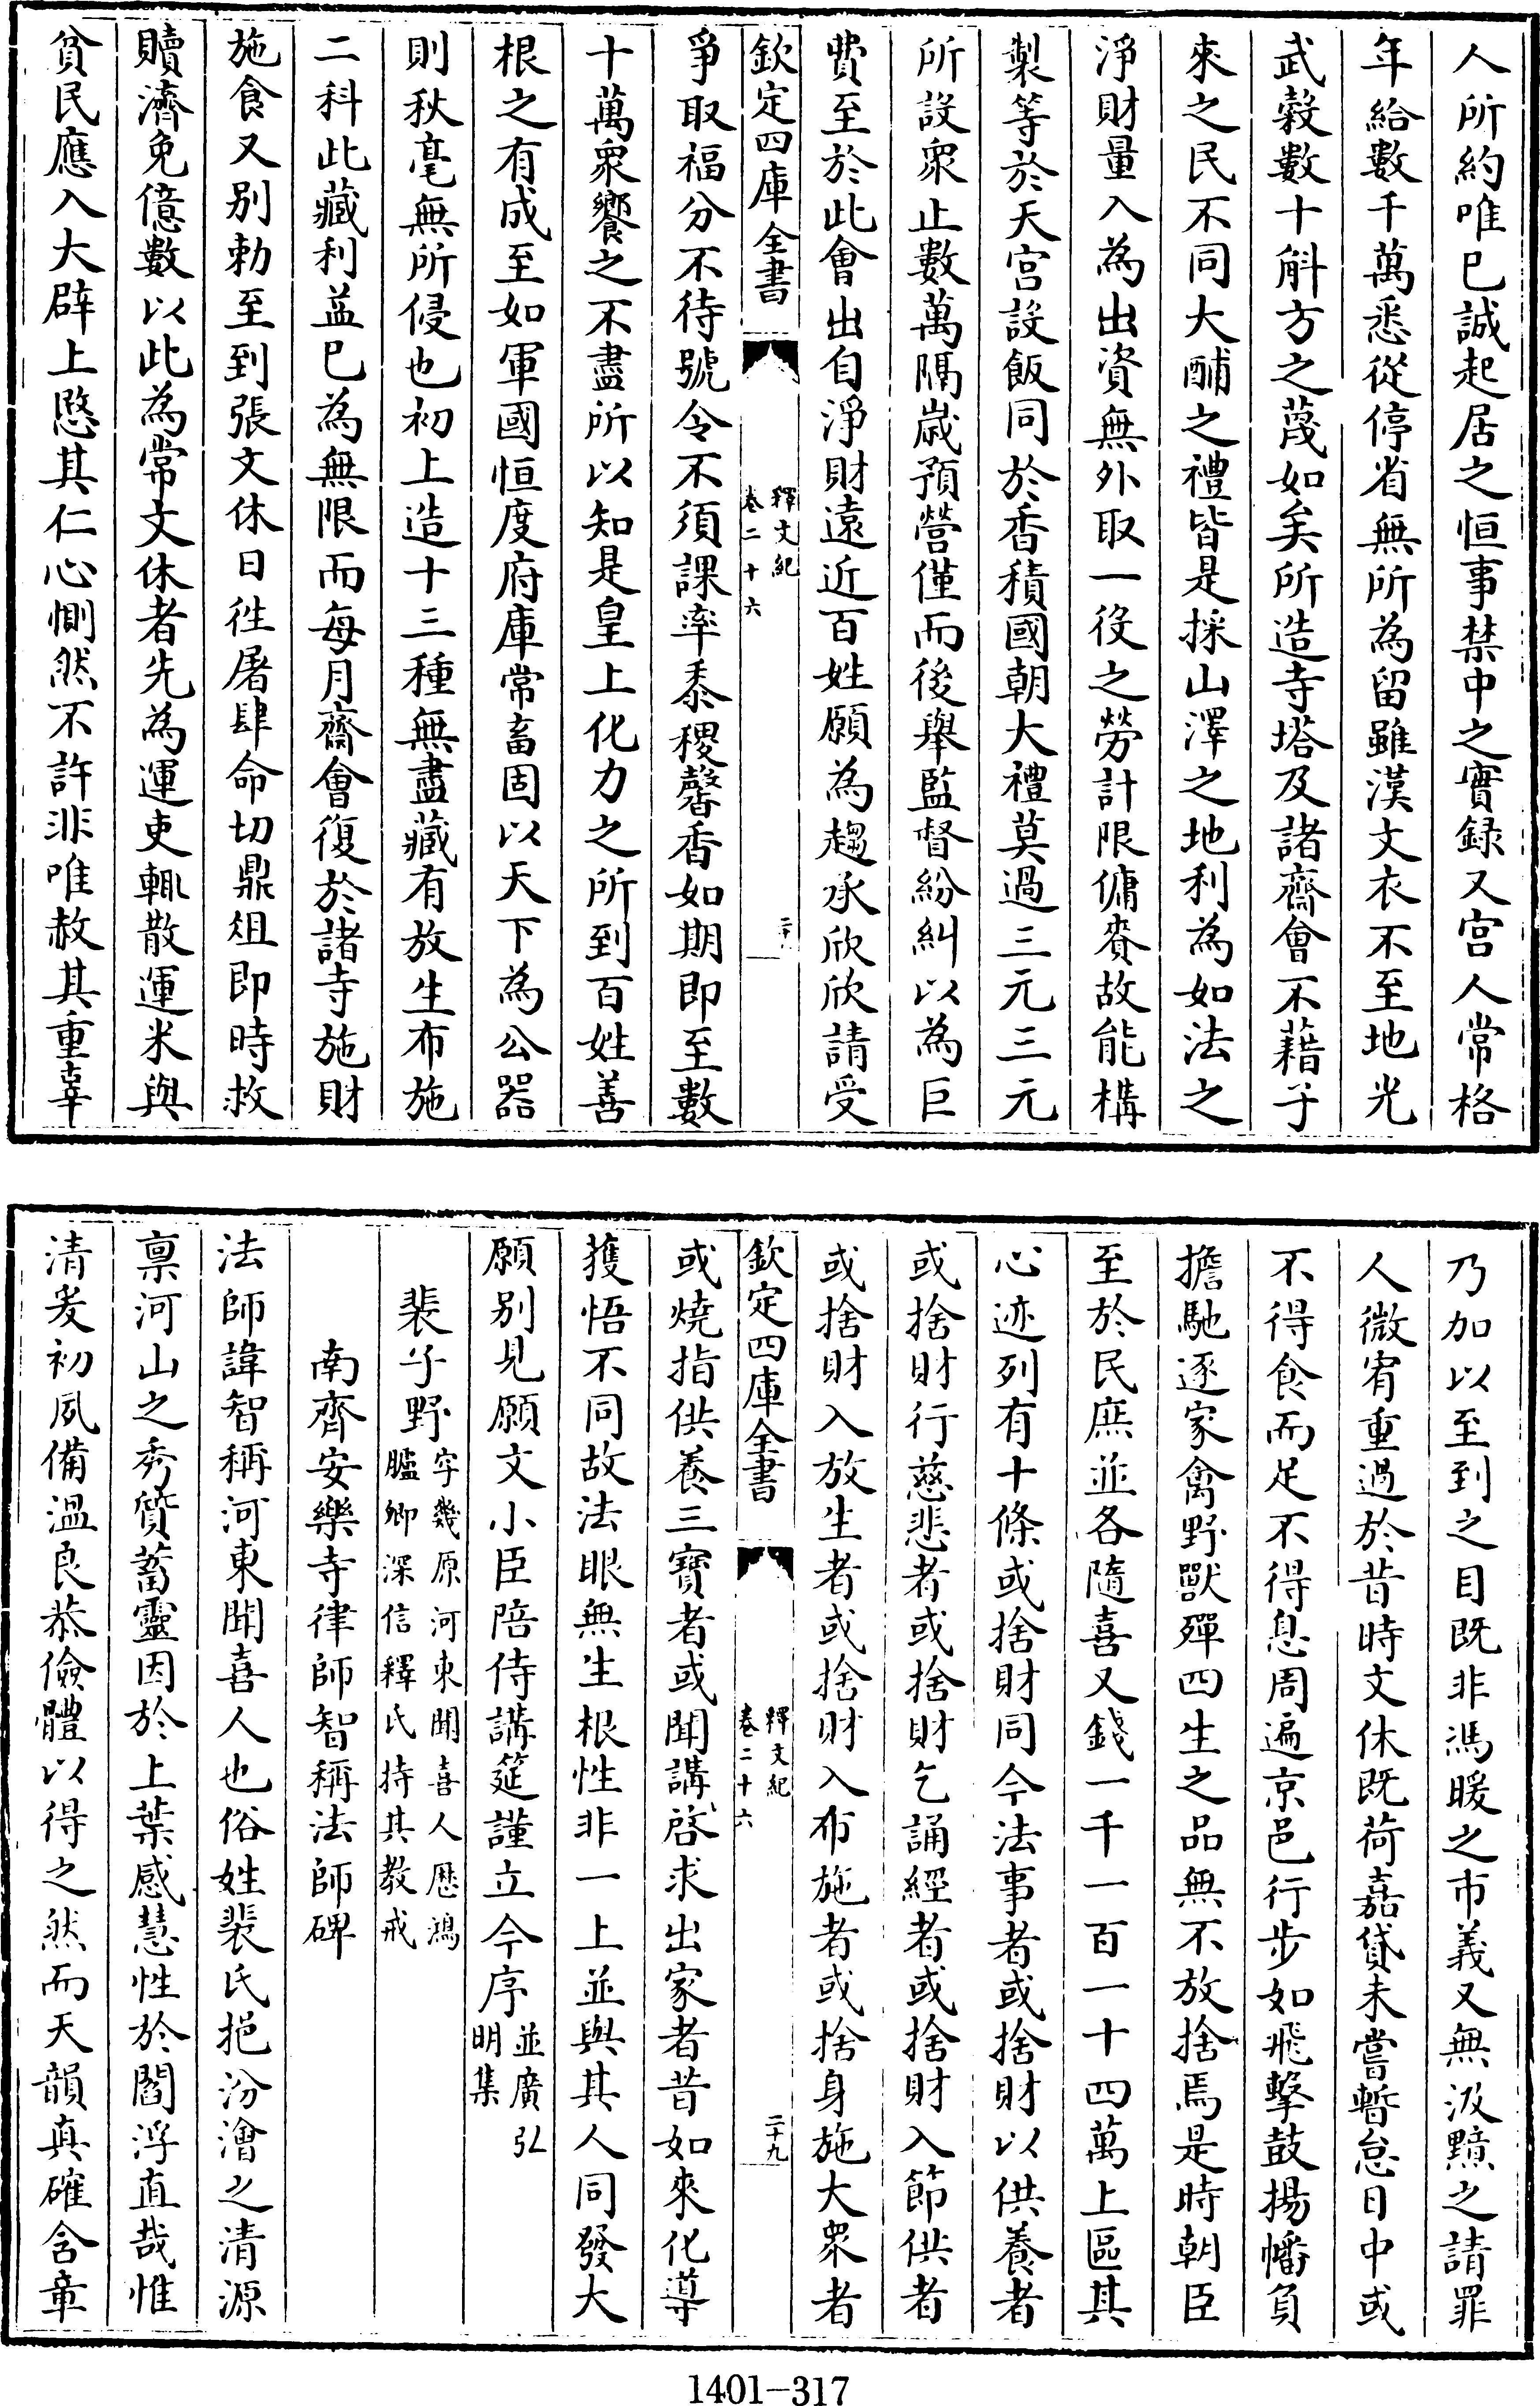 人所約唯已誠起居之恒事禁中之實録又宫人常格
年給數千萬悉從停省無所為留雖漢文衣不至地光
武穀數十斛方之蔑如矣所造寺塔及諸齋會不藉子
來之民不同大酺之禮皆是採山澤之地利為如法之
淨財量入為出資無外取一役之勞計限傭賚故能構
製等於天宫設飯同於香積國朝大禮莫過三元三元
所設衆止數萬隔歲預營僅而後舉監督紛糾以為巨
費至於此會出自淨財遠近百姓願為趨承欣欣請受
欽定四庫全書
釋文紀
卷二十六
二十八
爭取福分不待號令不須課率黍稷馨香如期即至數
十萬衆饗之不盡所以知是皇上化力之所到百姓善
根之有成至如軍國恒度府庫常畜固以天下為公器
則秋毫無所侵也初上造十三種無盡藏有放生布施
二科此藏利益已為無限而每月齋會復於諸寺施財
施食又别勅至到張文休日徃屠肆命切鼎俎即時救
贖濟免億數以此為常文休者先為運吏輒散運米與
貧民應入大辟上愍其仁心惻然不許非唯赦其重辜
乃加以至到之目既非馮暖之市義又無汲黯之請罪
人微宥重過於昔時文休既荷嘉貸未嘗暫怠日中或
不得食而足不得息周遍京邑行步如飛擊鼓揚幡負
擔馳逐家禽野獸殫四生之品無不放捨焉是時朝臣
至於民庶並各隨喜又錢一千一百一十四萬上區其
心迹列有十條或捨財同今法事者或捨財以供養者
或捨財行慈悲者或捨財乞誦經者或捨財入節供者
或捨財入放生者或捨財入布施者或捨身施大衆者
欽定四庫全書
釋文紀
卷二十六
二十九
或燒指供養三寶者或聞講啓求出家者昔如來化導
獲悟不同故法眼無生根性非一上並與其人同發大
願别見願文小臣陪侍講筵謹立今序並廣弘明集
裴子野字幾原河東聞喜人歷鴻臚卿深信釋氏持其教戒
南齊安樂寺律師智稱法師碑
法師諱智稱河東聞喜人也俗姓裴氏挹汾澮之清源
禀河山之秀質蓄靈因於上葉感慧性於閻浮直哉惟
清爰初夙備温良恭儉體以得之然而天韻真確含章
1401-317